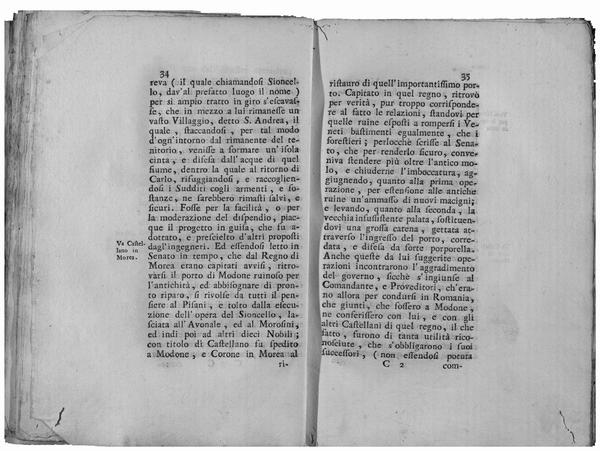 34
reva ( il quale chiamandosi Sioncel-
lo, dav'al prefatto luogo il nome )
per sì ampio tratto in giro s'escavas-
se, che in mezzo a lui rimanesse un
vasto Villaggio, detto S. Andrea, il
quale, staccandosi, per tal modo
d'ogn'intorno dal rimanente del te-
nitorio, venisse a formare un'isola
cinta, e difesa dall'acque di quel
fiume, dentro la quale al ritorno di
Carlo, rifuggiandosi, e raccoglien-
dosi i Sudditi cogli armenti, e so-
stanze, ne sarebbero rimasti salvi, e
sicuri. Fosse per la facilità, o per
la moderazione del dispendio, piac-
que il progetto in guisa, che fu a-
dottato, e prescielto d'altri proposti
dagl'ingegneri. Ed essendosi letto in
Va Castel-
lano in
Morea.
Senato in tempo, che dal Regno di
Morea erano capitati avvisi, ritro-
varsi il porto di Modone ruinoso per
l'antichità, ed abbisognare di pron-
to riparo, si rivolse da tutti il pen-
siere al Pisani, e tolto dalla esecu-
zione dell'opera del Sioncello, la-
sciata all'Avonale, ed al Morosini,
ed indi poi ad altri dieci Nobili;
con titolo di Castellano fu spedito
a Modone, e Corone in Morea al
ri-
35
ristauro di quell'importantissimo por-
to. Capitato in quel regno, ritrovò
per verità, pur troppo corrisponde-
re al fatto le relazioni, standovi per
quelle ruine esposti a rompersi i Ve-
neti bastimenti egualmente, che i
forestieri; perlocchè scrisse al Sena-
to, che per renderlo sicuro, conve-
niva stendere più oltre l'antico mo-
lo, e chiuderne l'imboccatura, ag-
giugnendo, quanto alla prima ope-
razione, per estensione alle antiche
ruine un'ammasso di nuovi macigni;
e levando, quanto alla seconda, la
vecchia insussistente palata, sostituen-
dovi una grossa catena, gettata at-
traverso l'ingresso del porto, corre-
data, e difesa da forte porporella.
Anche queste da lui suggerite ope-
razioni incontrarono l'aggradimento
del governo, sicchè s'ingiunse al
Comandante, e Proveditori, ch'era-
no allora per condursi in Romania,
che giunti, che fossero a Modone,
ne conferissero con lui, e con gli
altri Castellani di quel regno, il che
fatto, furono di tanta utilità rico-
nosciute, che s'obbligarono i suoi
successori, ( non essendosi potuta
C 2
com-